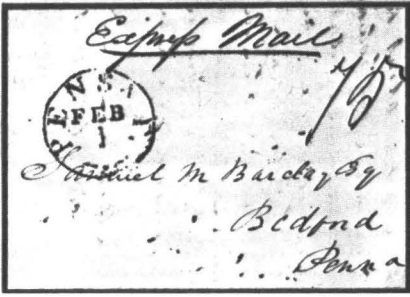 Express Mail
75
PENS
FEB
1
Samuel M Barclay Esq
Bedford
Penna